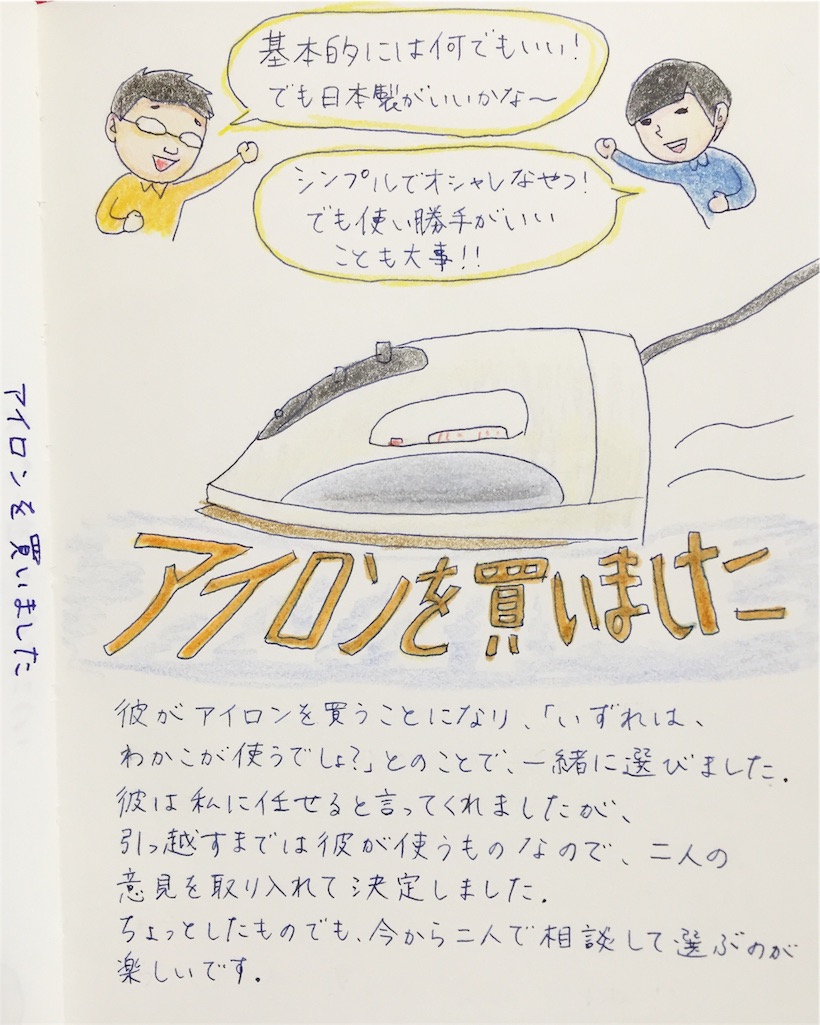 基本的には何でもいい!
でも日本製がいいかな〜
シンプルでオシャレなやつ!
でも使い勝手がいい
ことも大事!!
アイロンを買いました
アイロンを買いました
彼がアイロンを買うことになり、「いずれは、
わかこが使うでしょ?」とのことで、一緒に選びました.
彼は私に任せると言ってくれましたが、
引っ越すまでは彼が使うものなので、二人の
意見を取り入れて決定しました.
ちょっとしたものでも、今から二人で相談して選ぶのが
楽しいです.